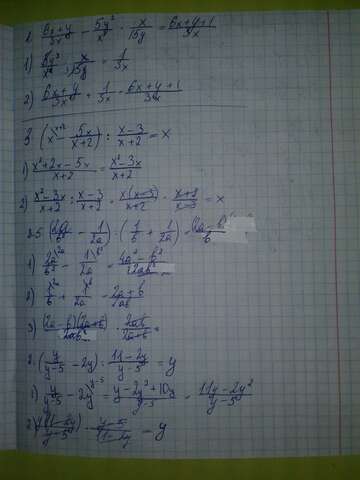 2. (6x+y)/3x - 5y²/x² · x/15y = (6x+y+1)/3x
1) 5y²/x² · x/15y = 1/3x
2) (6x+y)/3x + 1/3x = (6x+y+1)/3x
3. (x - 5x/(x+2)) : (x-3)/(x+2) = x
1) (x²+2x-5x)/(x+2) = (x²-3x)/(x+2)
2) (x²-3x)/(x+2) : (x-3)/(x+2) = x(x-3)/(x+2) · (x+2)/(x-3) = x
(2a/b² - 1/2a) : (1/b + 1/2a) = (2a-b)/b
1) 2a/b² - 1/2a = (4a²-b²)/2ab²
2) 1/b + 1/2a = (2a+b)/2ab
3) (2a-b)(2a+b)/2ab² · 2ab/(2a+b) =
2. (y/(y-5) - 2y) : (11-2y)/(y-5) = y
1) y/(y-5) - 2y = (y-2y²+10y)/(y-5) = (11y-2y²)/(y-5)
2) y(11-2y)/(y-5) · (y-5)/(11-2y) = y